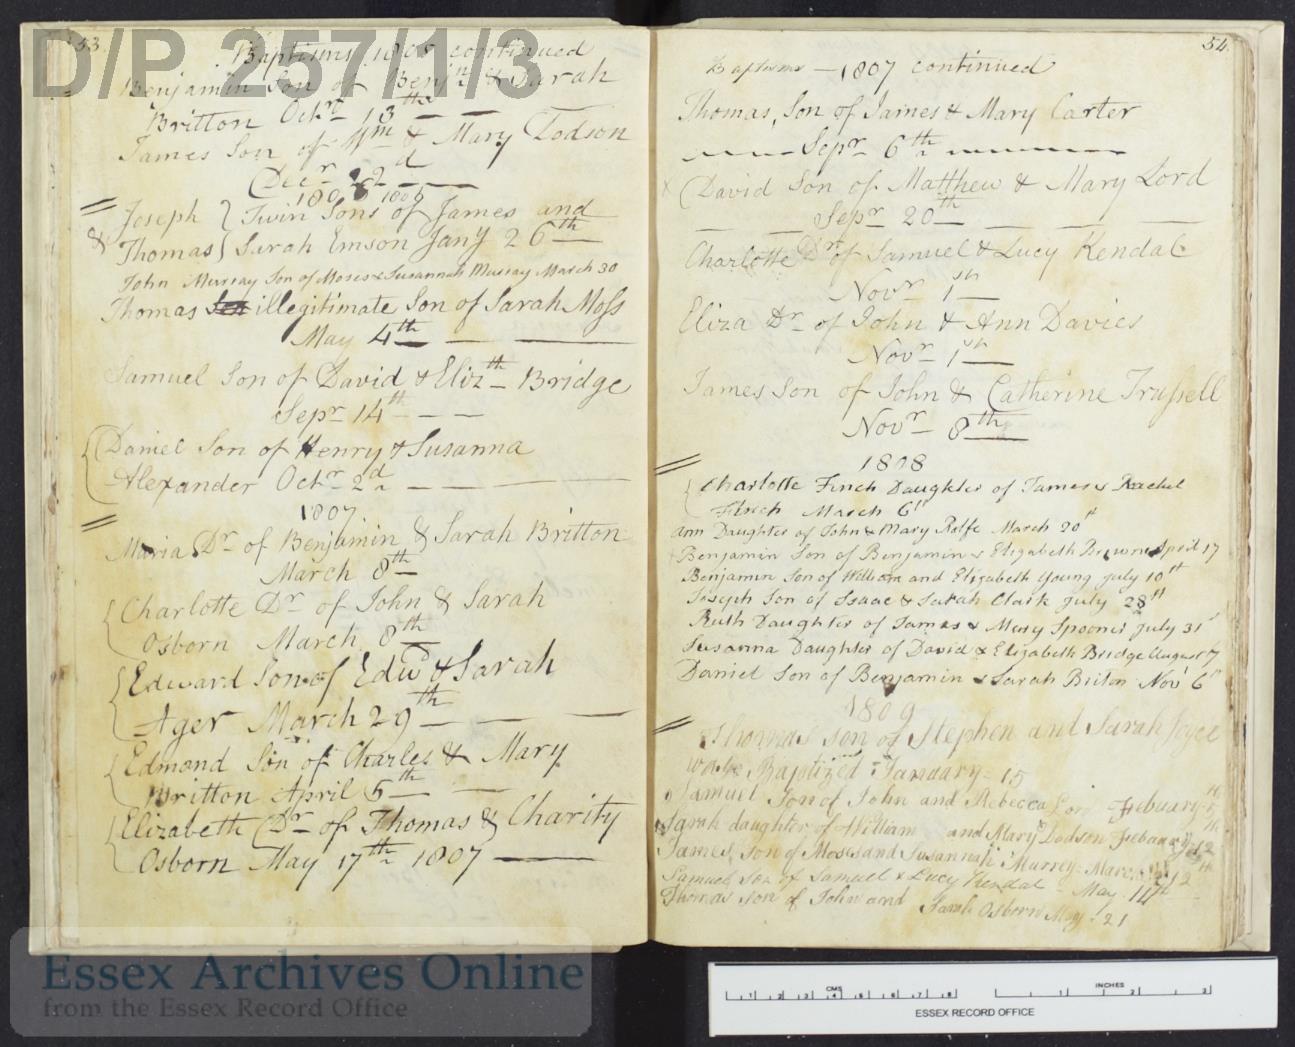 D/P 257/1/3
53.
Baptisms 1805 continued
Benjamin Son of Benjn & Sarah
Britton Octr 13th
James Son of Wm & Mary Dodson
Decr 22d
1806 1806
Joseph } Twin Sons of James and
& Thomas } Sarah Emson Jany 26th
John Murray Son of Moses & Susannah Murray March 30
Thomas Son illegitimate Son of Sarah Moss
May 4th
Samuel Son of David & Elizth Bridge
Sepr 14th
Daniel Son of Henry & Susanna
Alexander Octr 2d
1807
Maria Dr of Benjamin & Sarah Britton
March 8th
Charlotte Dr of John & Sarah
Osborn March 8th
Edward Son of Edwd & Sarah
Ager March 29th
Edmond Son of Charles & Mary
Writton April 5th
Elizabeth Dr of Thomas & Charity
Osborn May 17th 1807
54.
Baptisms 1807 continued
Thomas, Son of James & Mary Carter
Sepr 6th
David Son of Matthew & Mary Lord
Sepr 20th
Charlotte Dr of Samuel & Lucy Kendal
Novr 1st
Eliza Dr of John & Ann Davies
Novr 1st
James Son of John & Catherine Trussell
Novr 8th
1808
Charlotte Finch Daughter of James & Rachel
Finch March 6th
Ann Daughter of John & Mary Rolfe March 20st
Benjamin Son of Benjamin & Elizabeth Browne April 17
Benjamin Son of William and Elizabeth Young July 10th
Joseph Son of Isaac & Sarah Clark July 28st
Ruth Daughter of James & Mary Spooner July 31st
Susanna Daughter of David & Elizabeth Bridge August 7
Daniel Son of Benjamin & Sarah Briton Nov 6th
1809
Thomas son of Stephen and Sarah Joyce
was Baptized January 15
Samuel Son of John and Rebecca Febuary 5th
Sarah daughter of William and Mary Dodson Febuary 12th
James Son of Moses and Susannah Murrey March 12th
Samuel Son of Samuel & Lucy Kendal May 14th
Thomas son of John and Sarah Osborn May 21
Essex Archives Online
from the Essex Record Office
CMS
1 2 3 4 5 6 7 8
INCHES
1 2 3
ESSEX RECORD OFFICE